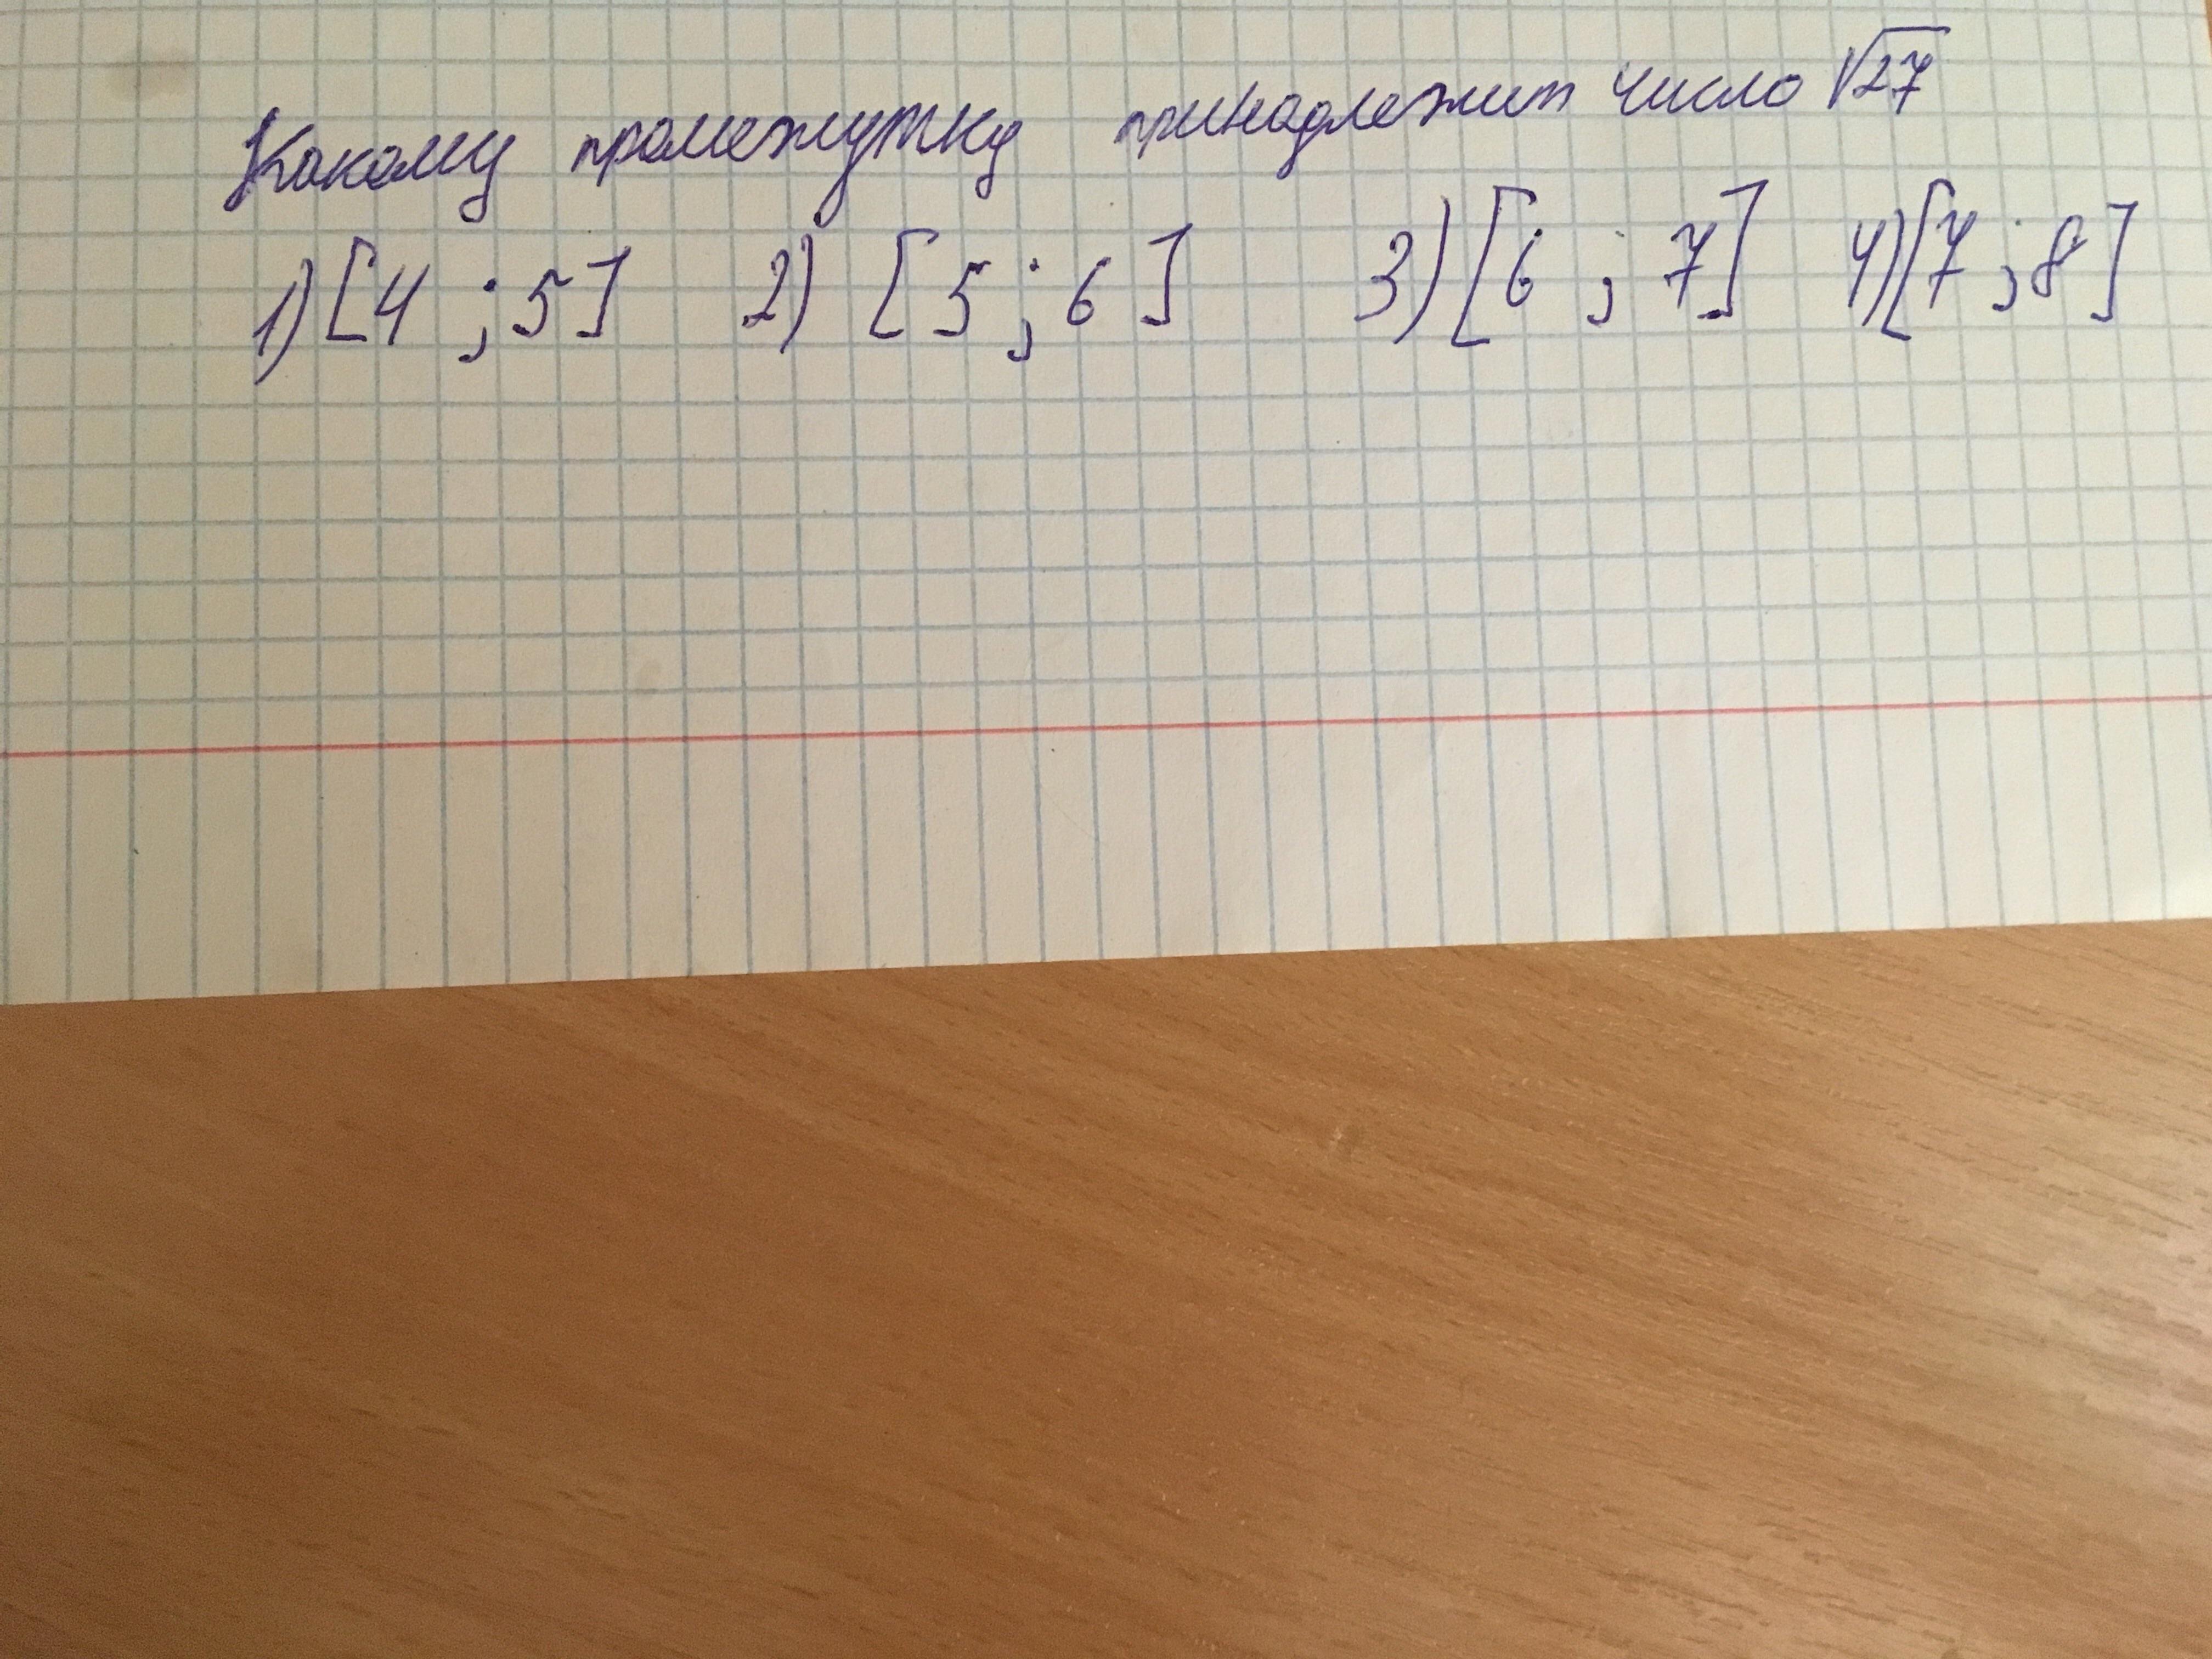 Какому промежутку принадлежит число √27
1) [4 ; 5] 2) [5 ; 6] 3) [6 ; 7] 4) [7 ; 8]